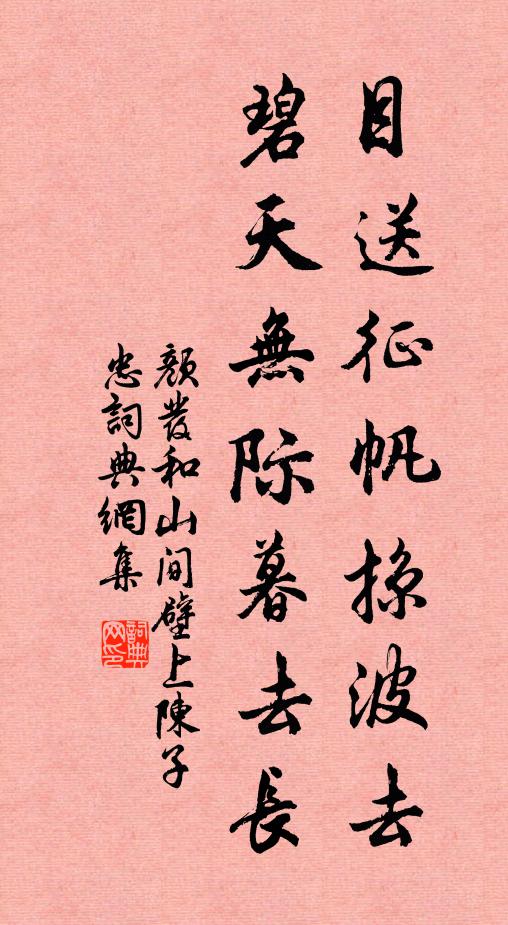 目送征帆掠波去
碧天無際暮去長
顏發和山間壁上陳子
忠詞典網集
詞典网印